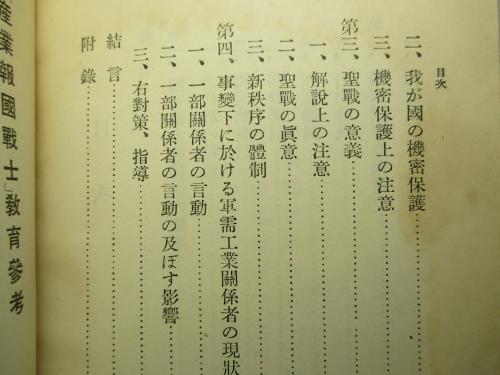 目次
二、我が國の機密保護
三、機密保護上の注意
第三、聖戰の意義
一、解說上の注意
二、聖戰の眞意
三、新秩序の體制
第四、事變下に於ける軍需工業關係者の現狀
一、一部關係者の言動
二、一部關係者の言動の及ぼす影響
三、右對策、指導
結言
附錄
産業報國戰士」敎育參考